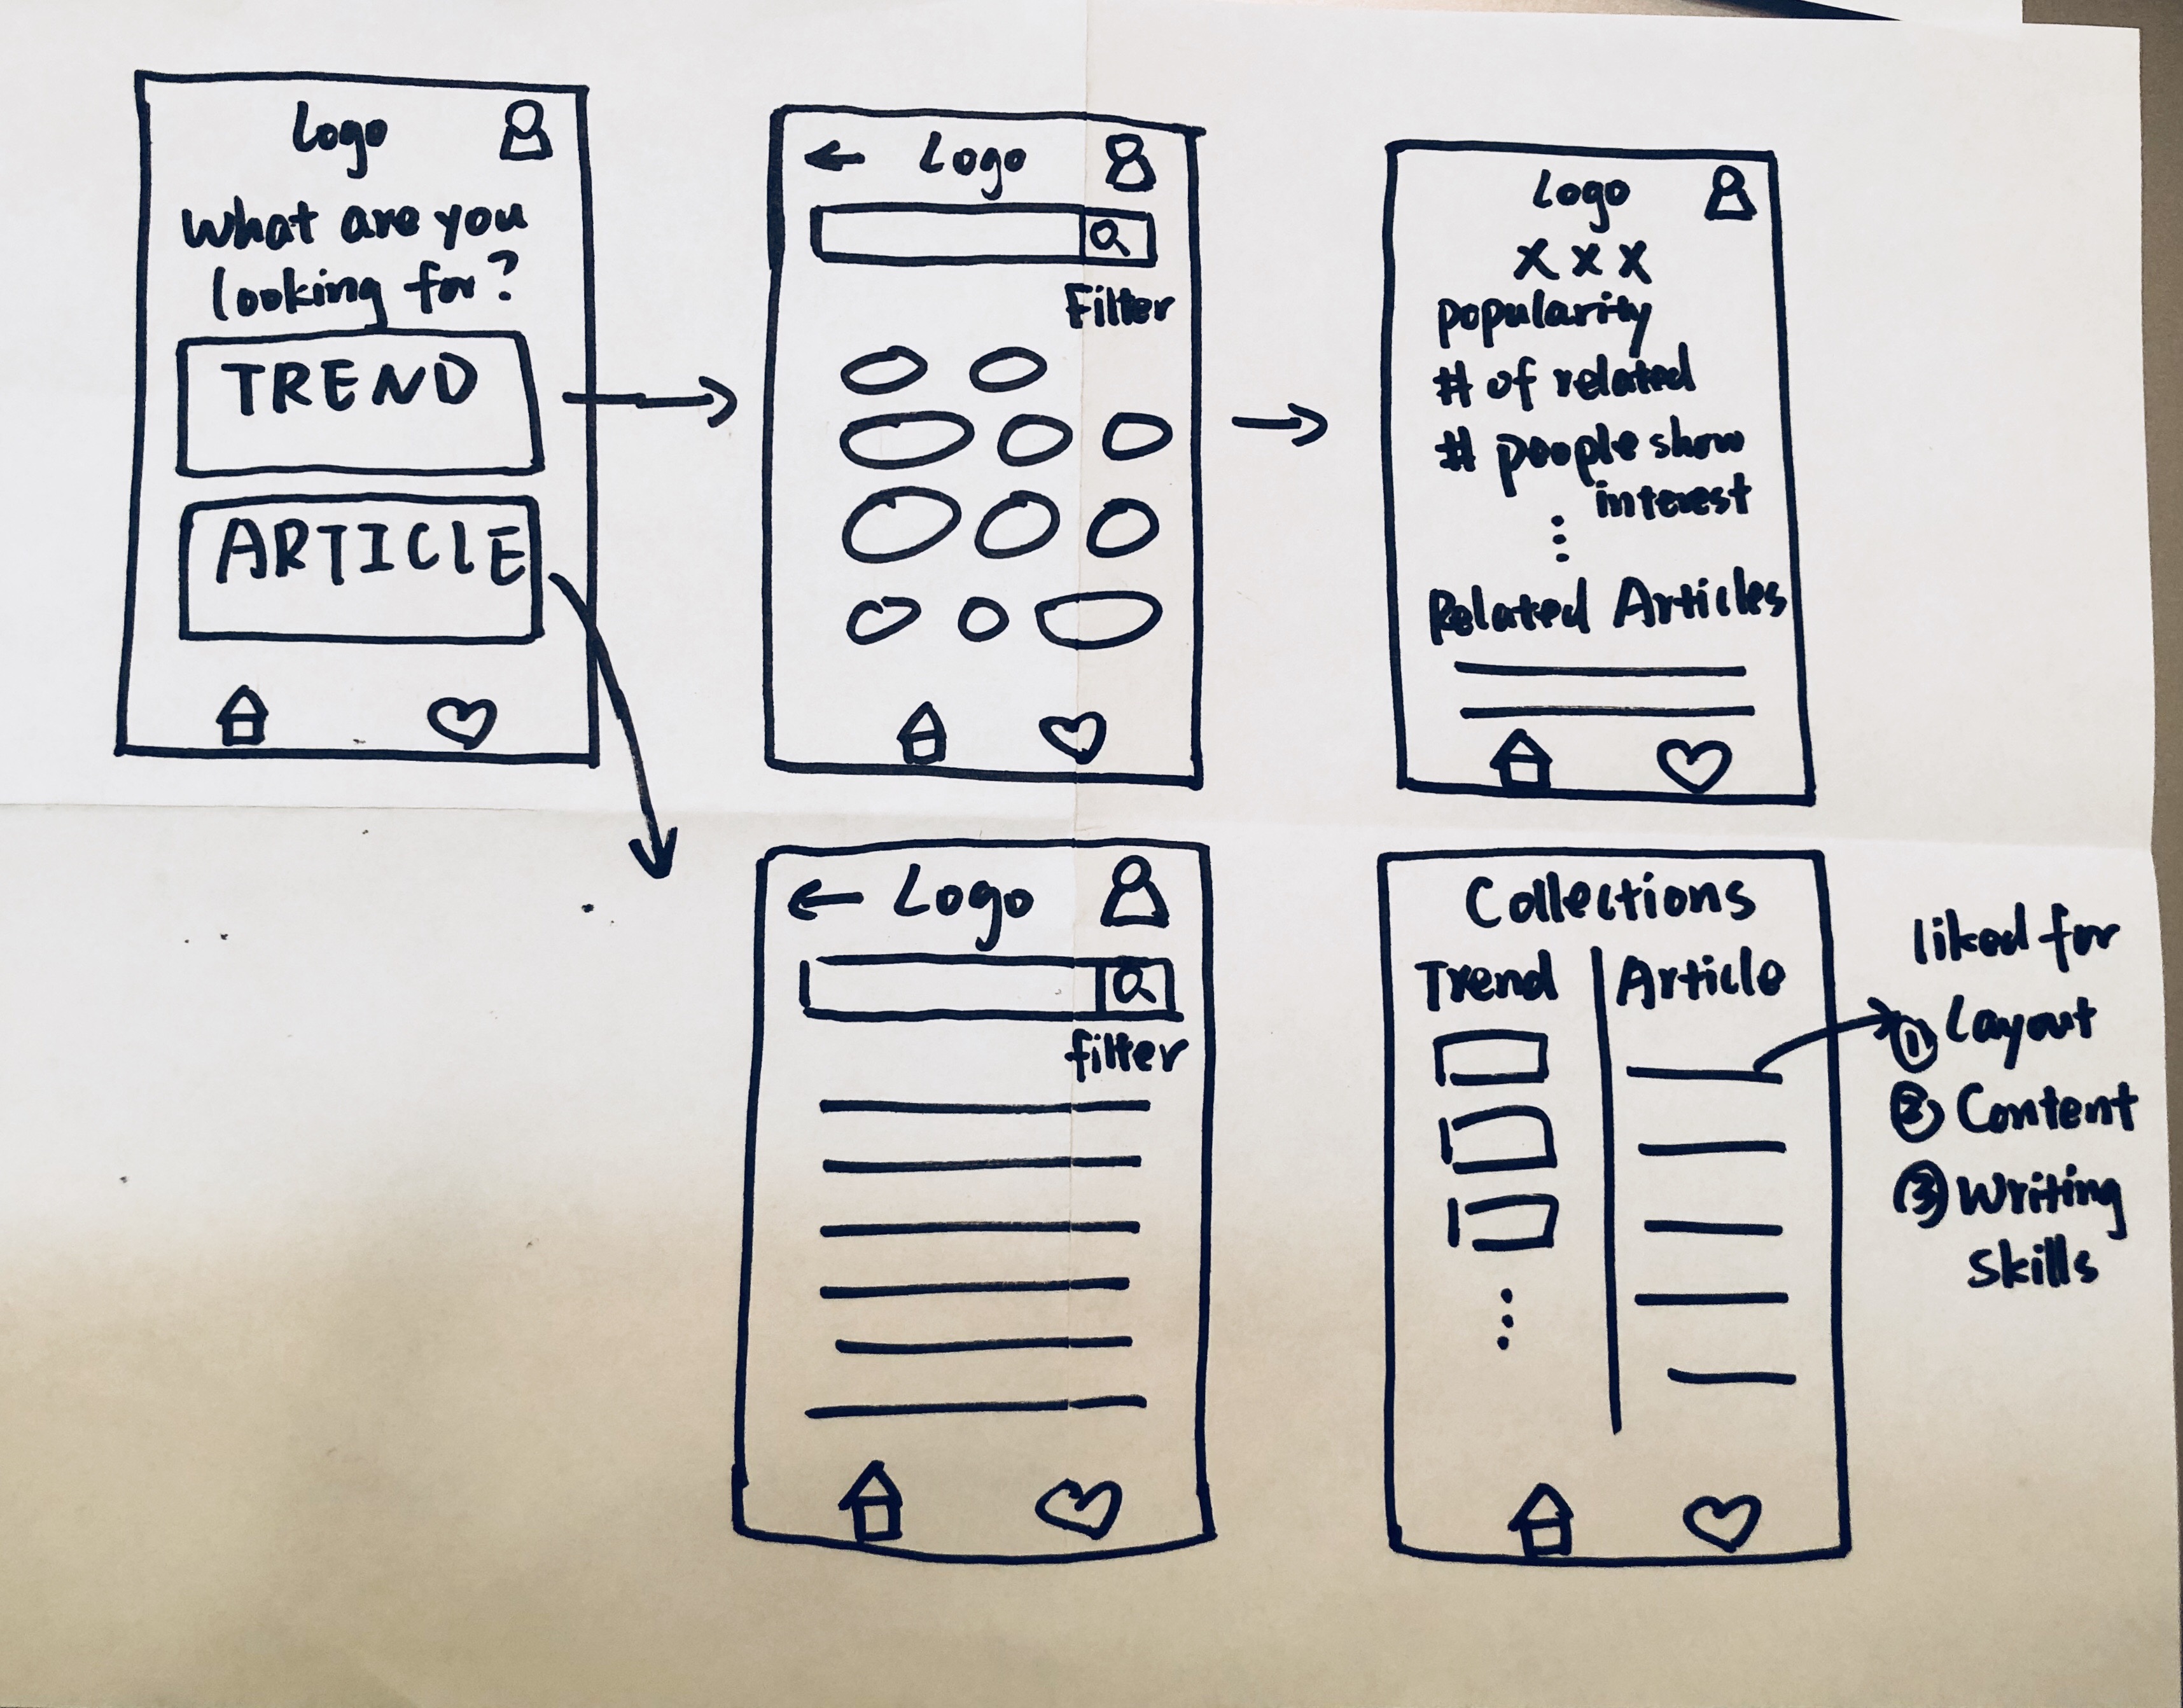 Logo
What are you
looking for?
TREND
ARTICLE
Logo
Filter
Logo
x x x
popularity
# of related
# people show
interest
Related Articles
Logo
filter
Collections
Trend
Article
liked for
① Layout
② Content
③ Writing
Skills